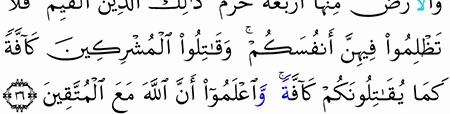 وَٱلْأَرْضَ مِنْهَآ أَرْبَعَةٌ حُرُمٌ ۚ ذَٰلِكَ ٱلدِّينُ ٱلْقَيِّمُ ۚ فَلَا
تَظْلِمُوا۟ فِيهِنَّ أَنفُسَكُمْ ۚ وَقَٰتِلُوا۟ ٱلْمُشْرِكِينَ كَآفَّةً
كَمَا يُقَٰتِلُونَكُمْ كَآفَّةً ۚ وَٱعْلَمُوٓا۟ أَنَّ ٱللَّهَ مَعَ ٱلْمُتَّقِينَ ٣٦